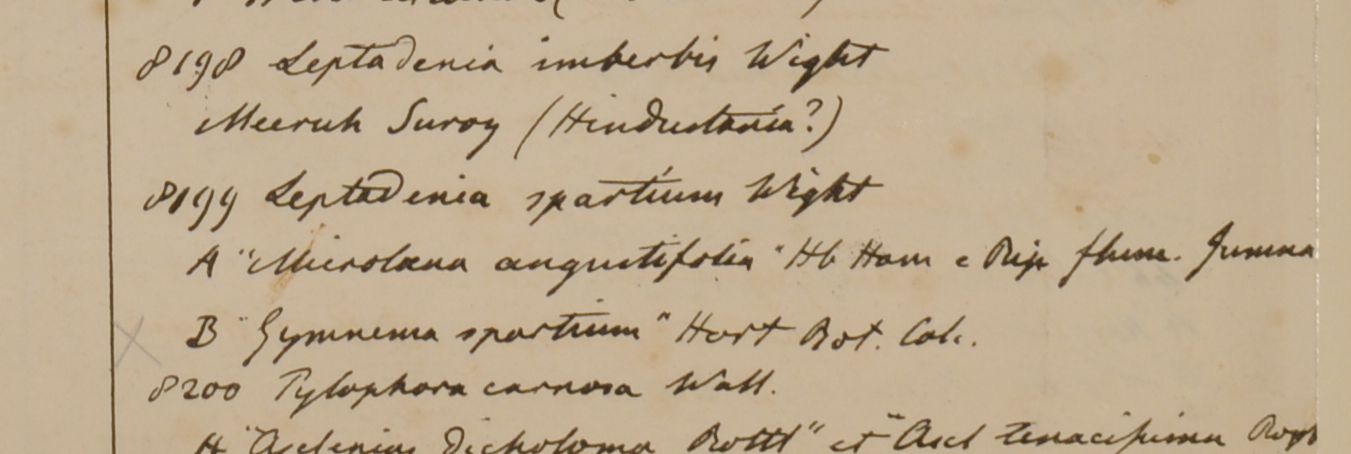 8198 Leptadenia imberbis Wight
Meeruh Suroy (Hindustania?)
8199 Leptadenia spartium Wight
A "Microlœna angustifolia" Hb Ham e Rip flum. Jumna
B "Gymnema spartium" Hort Bot. Calc.
8200 Tylophora carnosa Wall.
A "Asclepias dichotoma Rottl" et "Ascl tenacissima Roxb